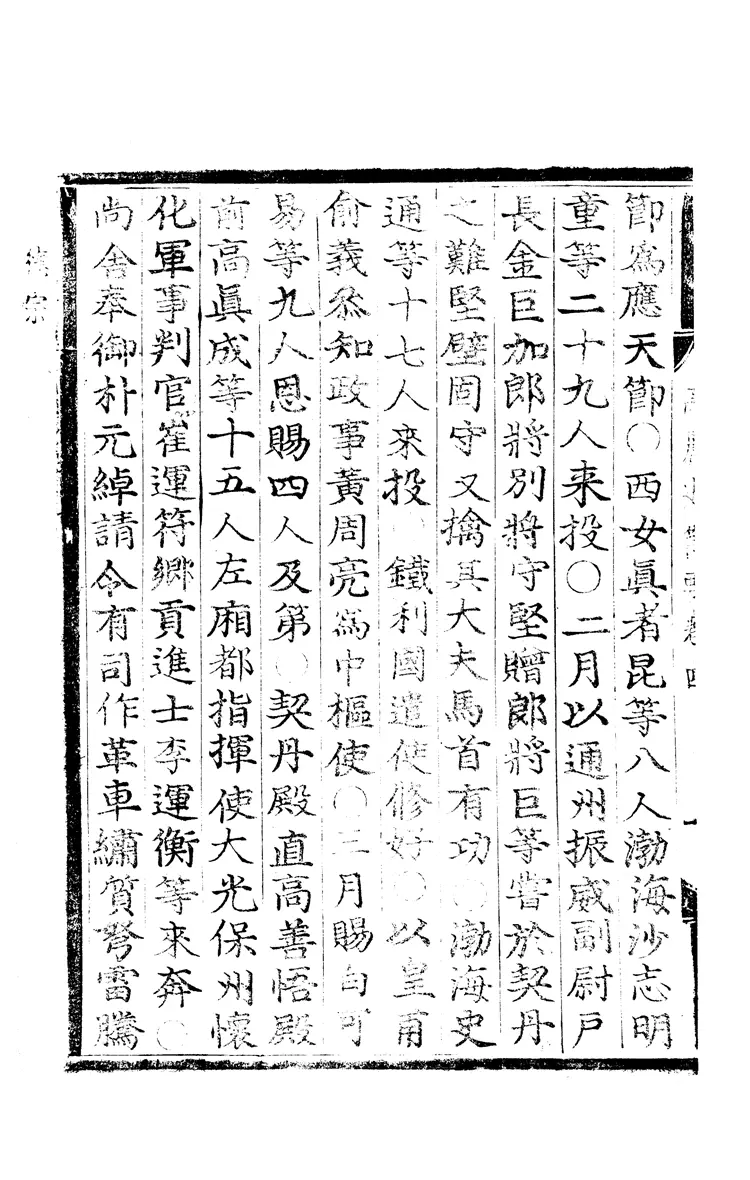 高麗史節要卷四
節爲應天節○西女眞者昆等八人渤海沙志明
童等二十九人来投○二月以通州振威副尉戶
長金巨加郎將別將守堅贈郎將巨等嘗於契丹
之難堅壁固守又擒其大夫馬首有功○渤海史
通等十七人來投○鐵利國遣使修好○以皇甫
俞義叅知政事黃周亮爲中樞使○三月賜白可
易等九人恩賜四人及第○契丹殿直高善悟殿
前高眞成等十五人左廂都指揮使大光保州懷
化軍事判官崔運符鄉貢進士李運衡等來奔○
尚舍奉御朴元綽請令有司作革車繡質弩雷騰
德宗